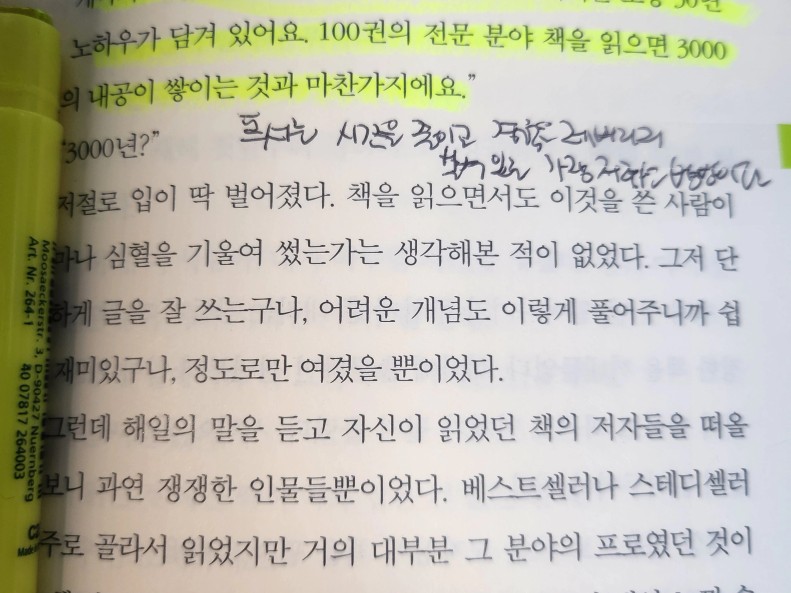 노하우가 담겨 있어요. 100권의 전문 분야 책을 읽으면 3000
의 내공이 쌓이는 것과 마찬가지에요.”
“3000년?”
시간을
저절로 입이 딱 벌어졌다. 책을 읽으면서도 이것을 쓴 사람이
마나 심혈을 기울여 썼는가는 생각해본 적이 없었다. 그저 단
하게 글을 잘 쓰는구나, 어려운 개념도 이렇게 풀어주니까 쉽
재미있구나, 정도로만 여겼을 뿐이었다.
그런데 해일의 말을 듣고 자신이 읽었던 책의 저자들을 떠올
보니 과연 쟁쟁한 인물들뿐이었다. 베스트셀러나 스테디셀러
주로 골라서 읽었지만 거의 대부분 그 분야의 프로였던 것이
Moosaeckerstr. 3, D-90427 Nuernberg
Art. Nr. 264-1
40 07817 264003